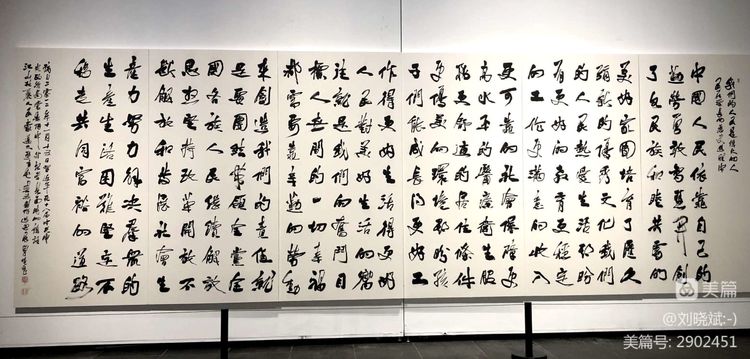 我们的人民是伟大的人
民在漫长的历史进程中
中国人民依靠自己的
勤劳勇敢智慧开创
了各民族和睦共处的
美好家园培育了历久
弥新的优秀文化我们
的人民热爱生活期盼
有更好的教育更稳定
的工作更满意的收入
更可靠的社会保障更
高水平的医疗卫生服
务更舒适的居住条件
更优美的环境期盼孩
子们能成长得更好工
作得更好生活得更好
人民对美好生活的向
往就是我们的奋斗目
标人世间的一切幸福
都需要靠辛勤的劳动
来创造我们的责任就
是要团结带领全党全
国各族人民继续解放
思想坚持改革开放不
断解放和发展社会生
产力努力解决群众的
生产生活困难坚定不
移走共同富裕的道路
美篇
@刘晓斌:-)
美篇号: 2902451